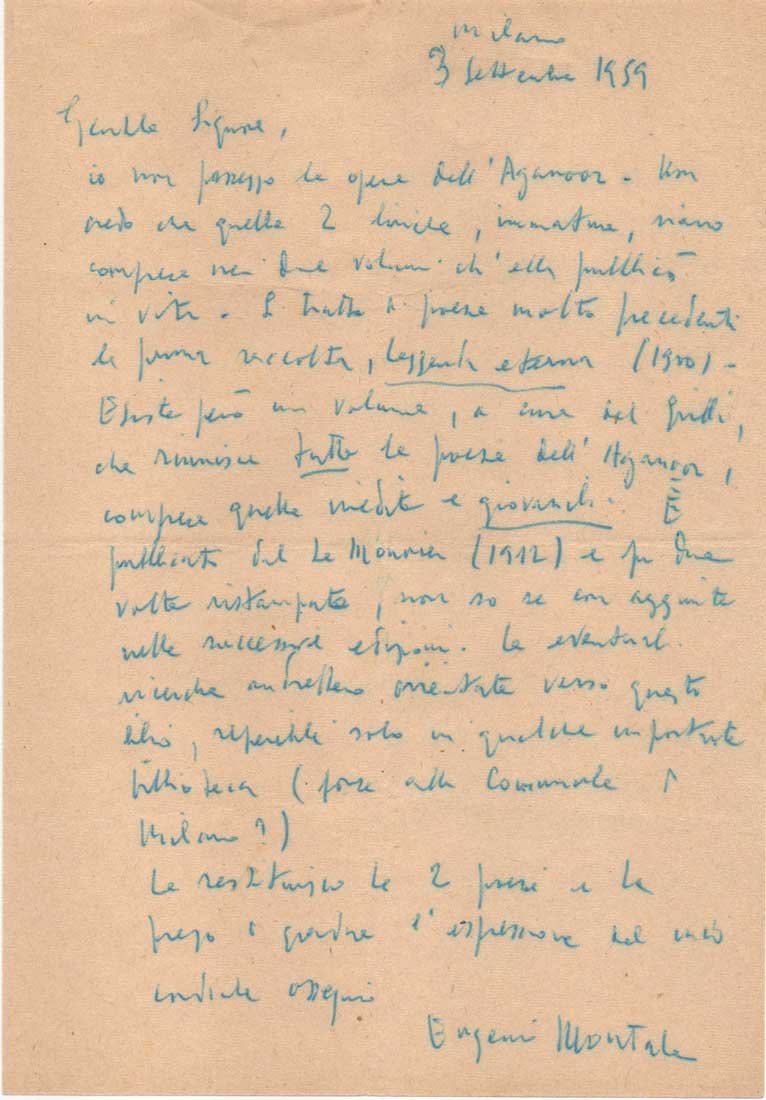 Milano
3 settembre 1959
Gentile Signore,
io non posseggo le opere dell'Aganoor. Non
credo che quelle 2 liriche, immature, siano
comprese nei due volumi ch'ella pubblicò
in vita. Si tratta di poesie molto precedenti
la prima raccolta, Leggenda eterna (1900).
Esiste però un volume, a cura del Grilli,
che riunisce tutte le poesie dell'Aganoor,
comprese quelle inedite e giovanili. È
pubblicato dal Le Monnier (1912) e fu due
volte ristampato, non so se con aggiunte
nelle successive edizioni. Le eventuali
ricerche andrebbero orientate verso questo
libro, reperibile solo in qualche importante
biblioteca (forse alla Comunale di
Milano?)
Le restituisco le 2 poesie e La
prego di gradire l'espressione del mio
cordiale ossequio
Eugenio Montale